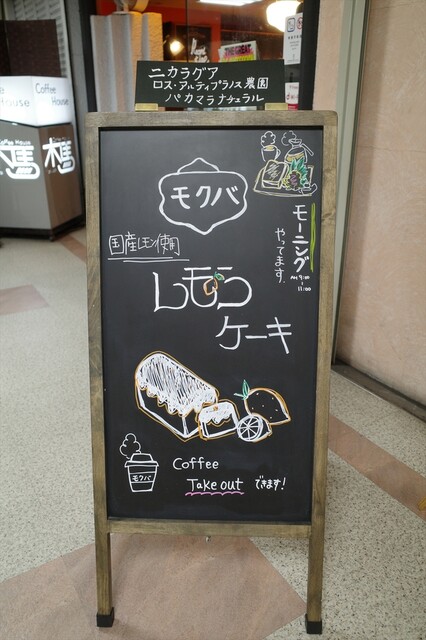 ニカラグア
ロス・アルティプラノス農園
パカマラナチュラル
Coffee
House
モクバ
モーニング
やってます。
AM 9:00
~
11:00
国産レモン使用
レモン
ケーキ
モクバ
Coffee
Take out できます!